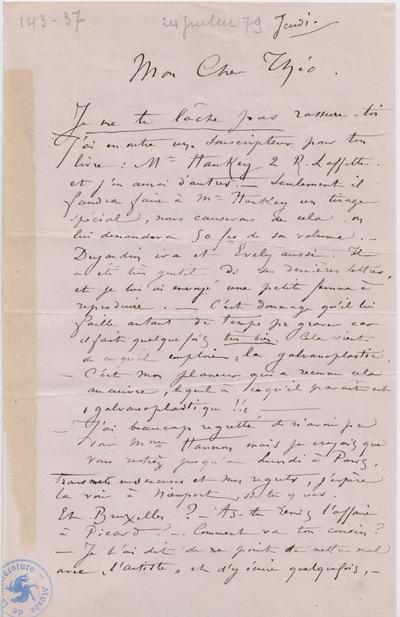 143-37 24 juillet 79 Jeudi.
Mon Cher Théo.
Je ne te lâche pas rassure-toi
j'ai en outre un souscripteur pour ton
livre: Mr Hankey 2 R. Laffitte.
et j'en aurai d'autres. — Seulement il
faudra faire à Mr Hankey un tirage
spécial, nous causerons de cela on
lui demandera 50 frs de son volume. —
Dujardin ira et Evely aussi. Il
a été très gentil ds ses dernières lettres,
et je lui ai envoyé une petite femme à
reproduire. — C'est dommage qu'il lui
faille autant de temps pr graver car
il fait quelquefois très bien. Cela vient
de ce qu'il emploie la galvanoplastie.
— C'est mon planeur qui a reconnu cela
au cuivre, lequel à ce qu'il paraît est
galvanoplastique!!, —
— J'ai beaucoup regretté de n'avoir pu
voir Mme Hannon mais je croyais que
vous restiez jusqu'au lundi à Paris,
transmets mes excuses et mes regrets, j'espère
la voir à Nieuport, si tu y vas.
Et Bruxelles? — As-tu fini l'affaire
à Picard? — Comment va ton cousin?
— Je t'ai dit de ne point te mettre mal
avec "l'artiste" et d'y écrire quelquefois, —
Musée de la Littérature